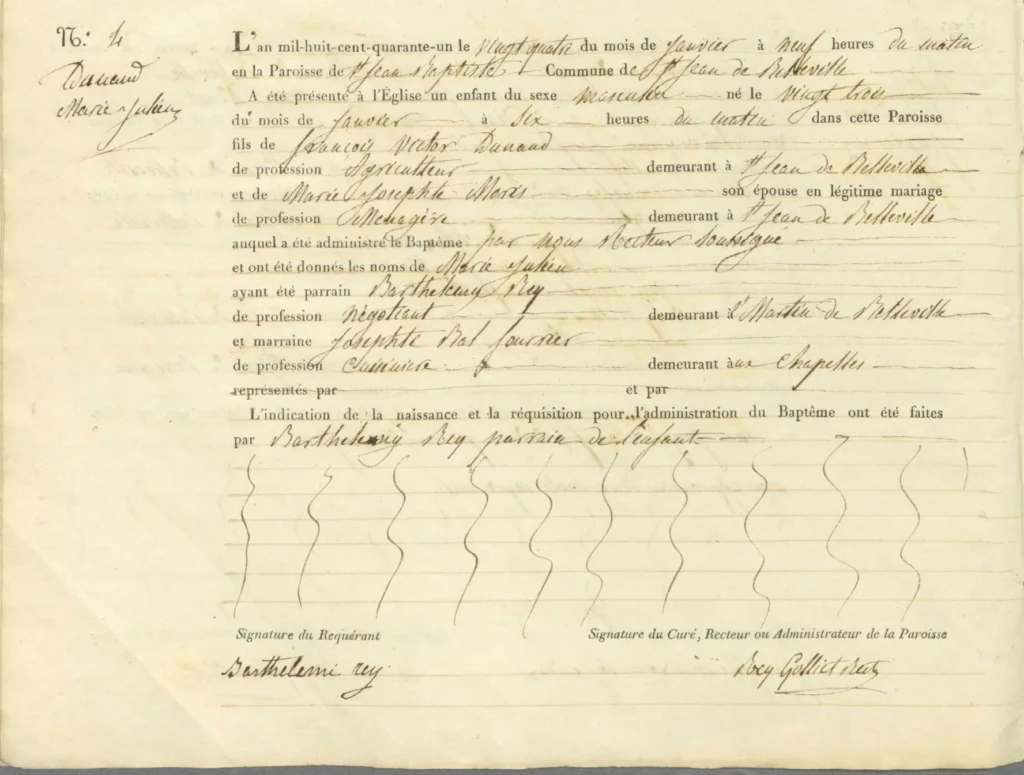 N.º 4
Dunand
Marie Julien
L'an mil-huit-cent-quarante-un le vingt quatre du mois de Janvier à neuf heures du matin
en la Paroisse de St Jean Baptiste Commune de St Jean de Belleville
A été présenté à l'Église un enfant du sexe masculin né le vingt trois
du mois de Janvier à Six heures du matin dans cette Paroisse
fils de françois Victor Dunand
de profession Agriculteur demeurant à St Jean de Belleville
et de Marie Josephte son épouse en légitime mariage
de profession Menagère demeurant à St Jean de Belleville
auquel a été administré le Baptême par nous Recteur soussigné
et ont été donnés les noms de Marie Julien
ayant été parrain Barthélemy Rey
de profession Négotiant demeurant à St Martin de Belleville
et marraine Josephte Bal fourrier
de profession Cuisinière demeurant à aux Chapelles
représentés par et par
L'indication de la naissance et la réquisition pour l'administration du Baptême ont été faites
par Barthelemy Rey parrain de l'enfant
Signature du Requérant Signature du Curé, Recteur ou Administrateur de la Paroisse
Barthelemi rey Rey Golliet Rect